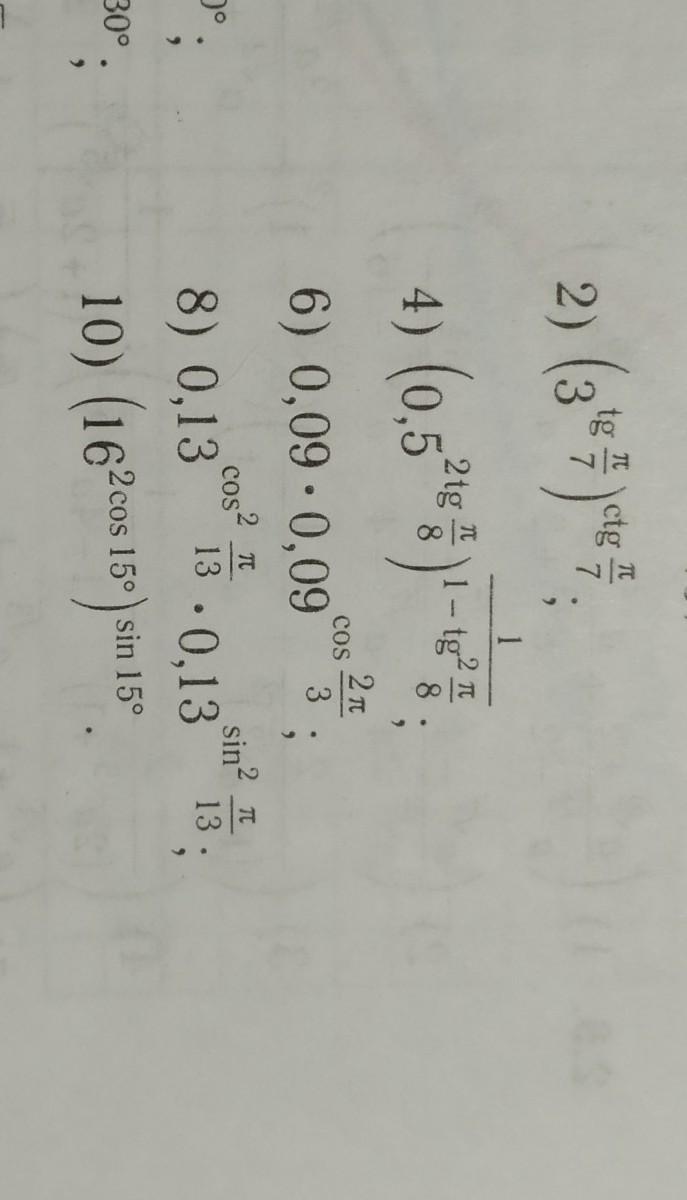 2) (3^{tg π/7})^{ctg π/7};
4) (0,5^{2tg π/8})^{1/(1 − tg² π/8)};
6) 0,09 · 0,09^{cos 2π/3};
0°;
8) 0,13^{cos² π/13} · 0,13^{sin² π/13};
30°;
10) (16^{2cos 15°})^{sin 15°}.